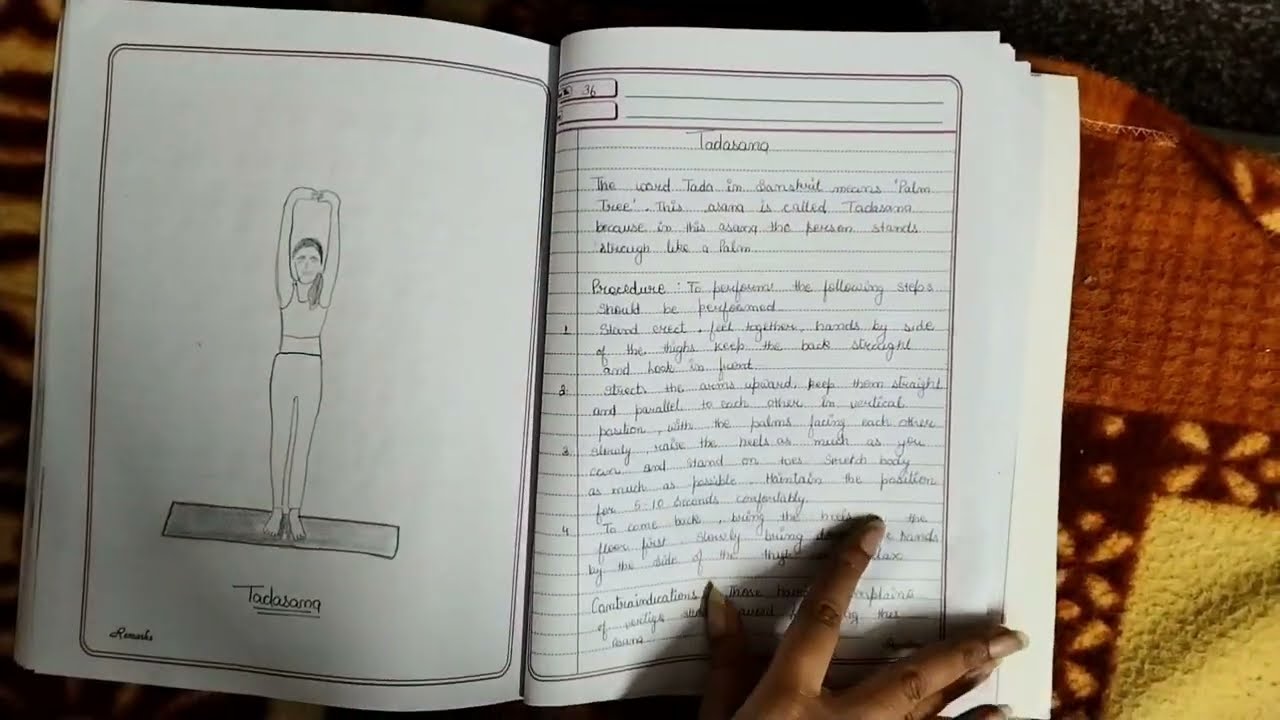 Tadasana
Remarks
36
Tadasana
The word Tada in Sanskrit means 'Palm
Tree'. This asana is called Tadasana
because in this asana the person stands
like a Palm
Procedure : To perform the following steps
should be performed
1. Stand erect, feet together, hands by side
of the thighs keep the back straight
and look in front.
2. the arms upward, keep them straight
and parallel to each other in vertical
position, with the palms facing each other
3. slowly raise the heels as much as you
can and stand on toes stretch body
as much as possible. Maintain the position
for 5-10 seconds comfortably.
4. To come back, bring the heels the
floor first. slowly bring hands
by the side of the
Contraindications Those
of vertigo this
asana